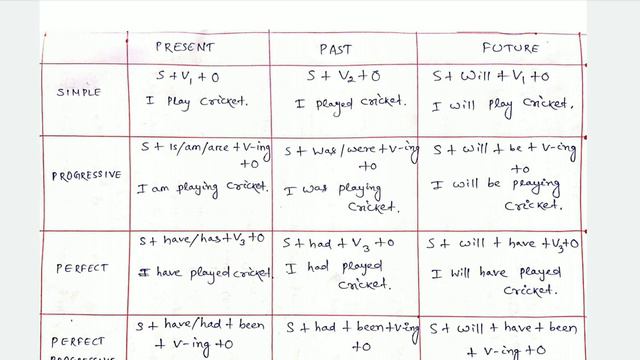 PRESENT PAST FUTURE
SIMPLE
S + V1 + O
I Play Cricket.
S + V2 + O
I played Cricket.
S + Will + V1 + O
I will play Cricket.
PROGRESSIVE
S + Is/am/are + V-ing
+O
I am playing Cricket.
S + Was/were + V-ing
+O
I was playing
Cricket.
S + will + be + V-ing
+O
I will be playing
Cricket.
PERFECT
S + have/has + V3 + O
I have played cricket.
S + had + V3 + O
I had played
Cricket.
S + will + have + V3 + O
I will have played
Cricket.
PERFECT
S + have/had + been
+ V-ing + O
S + had + been + V-ing
+O
S + will + have + been
+ V-ing + O